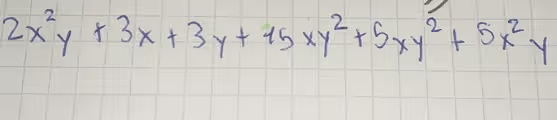 2x²y + 3x + 3y + 15xy² + 5xy² + 5x²y